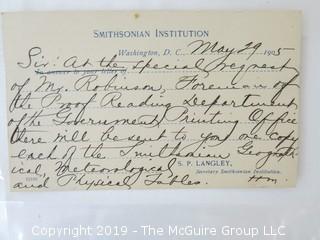 SMITHSONIAN INSTITUTION
Washington, D. C., May 29 1905
Sir: At the special request
In answer to your letter of
of Mr. Robinson, Foreman of
the Proof Reading Department
of the Government Printing Office
there will be sent to you one copy
each of the Smithsonian Geograph-
ical, Meteorological
S. P. LANGLEY,
and Physical Tables.
Secretary Smithsonian Institution.
Copyright 2019 - The McGuire Group LLC